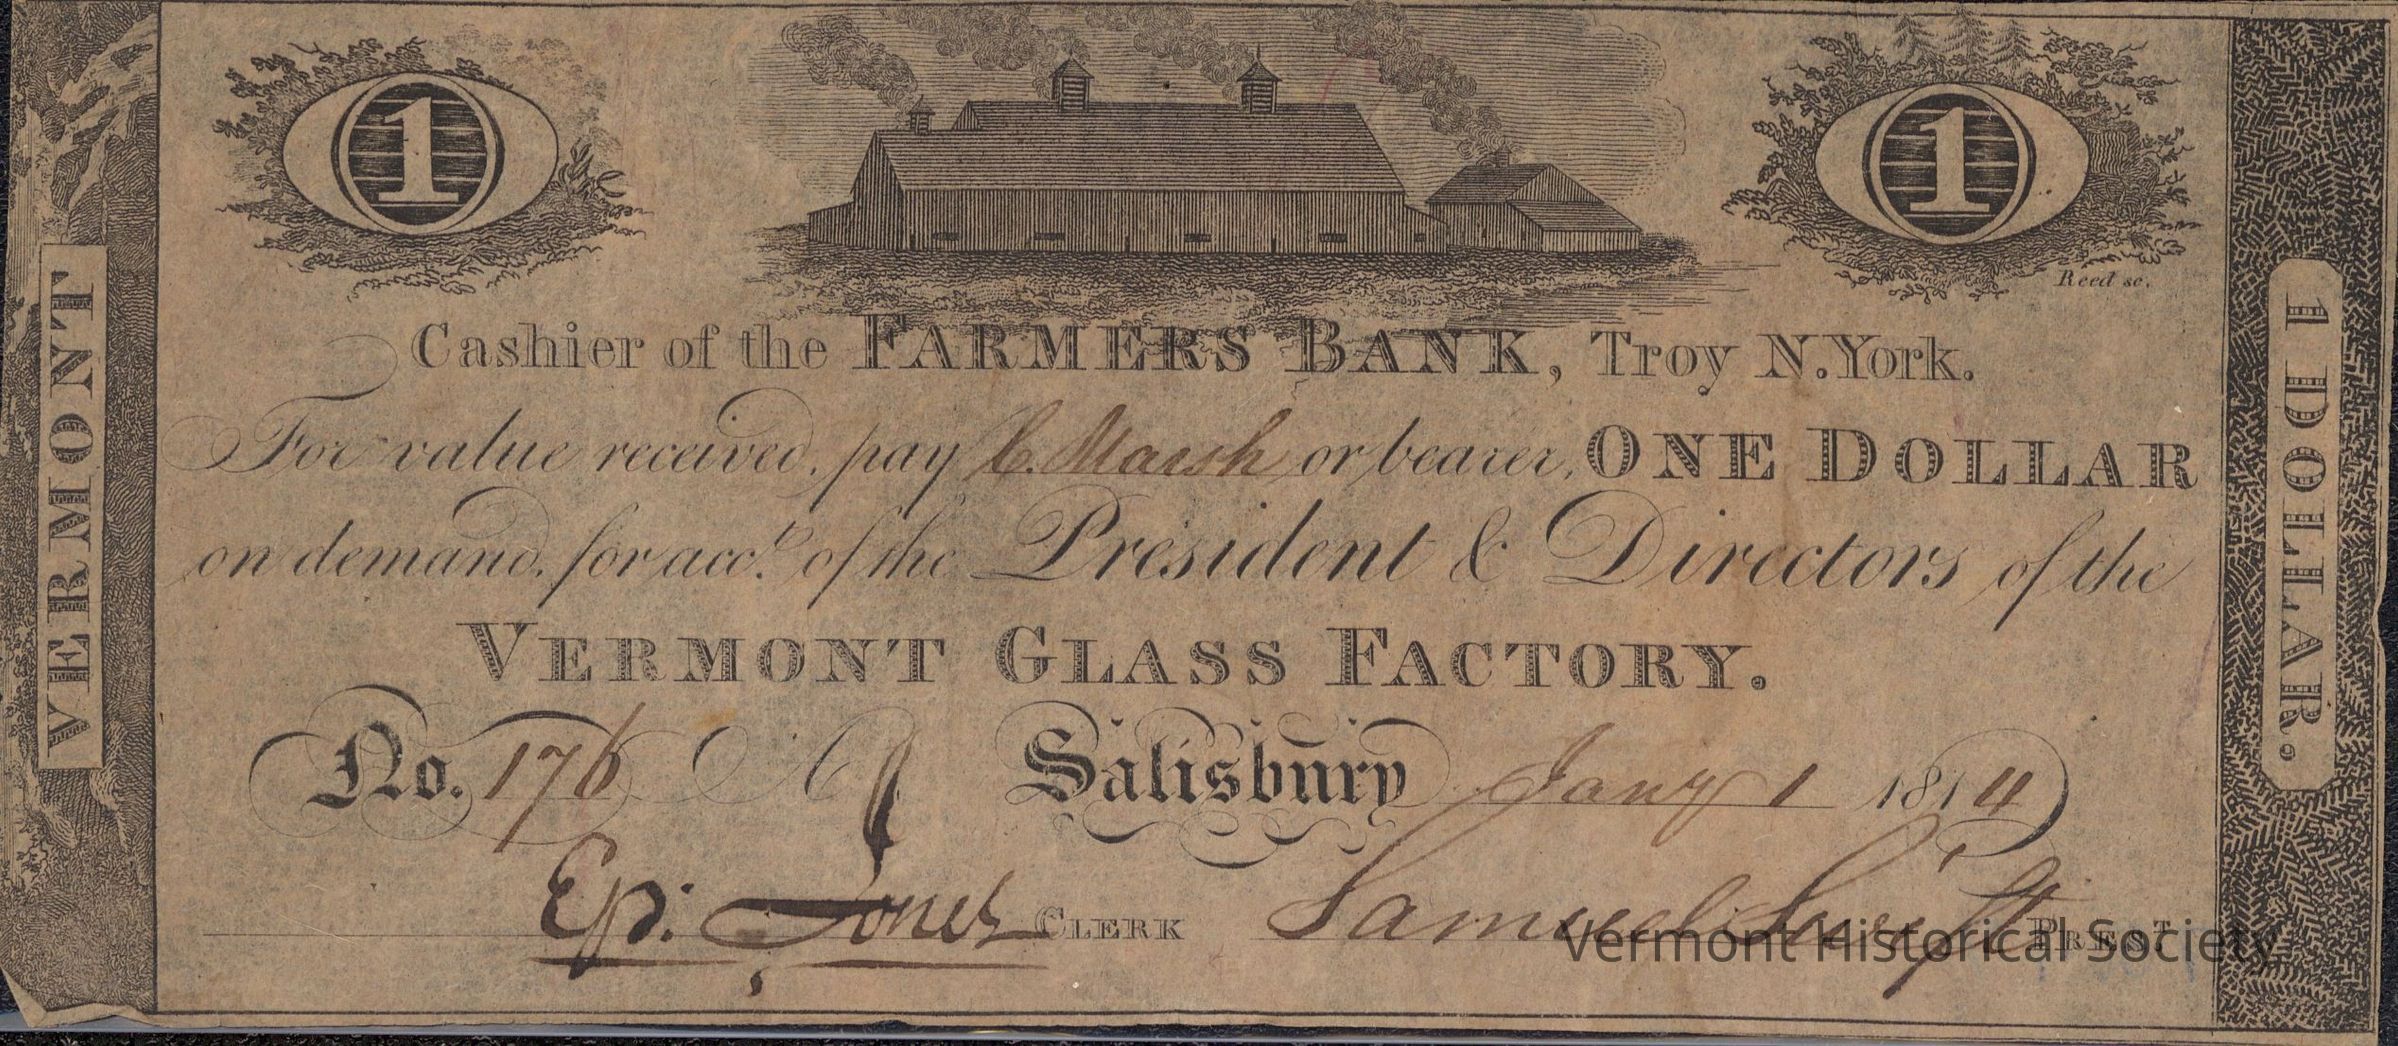 VERMONT
1
1
Reed sc.
Cashier of the FARMERS BANK, Troy N. York.
For value received, pay C. Marsh or bearer, ONE DOLLAR
on demand, for acct. of the President & Directors of the
VERMONT GLASS FACTORY.
No. 176 A Salisbury Jany 1 1814
Ep: Jones CLERK Samuel Swift PREST
1 DOLLAR.
Vermont Historical Society